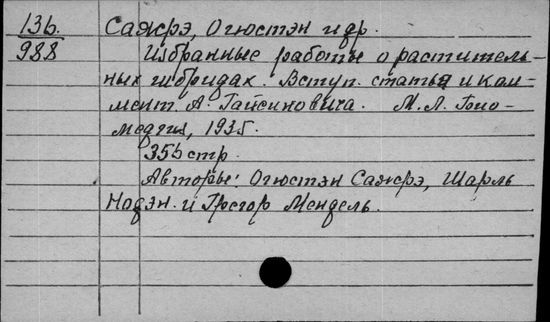 13б.
988
Сажрэ, Огюстэн и др.
Избранные работы о раститель-
ных гибридах. Вступ. статья и ком-
мент. А. Гайсиновича. М. Л. Био-
медгиз, 1935.
356 стр.
Авторы: Огюстэн Сажрэ, Шарль
Нодэн и Грегор Мендель.